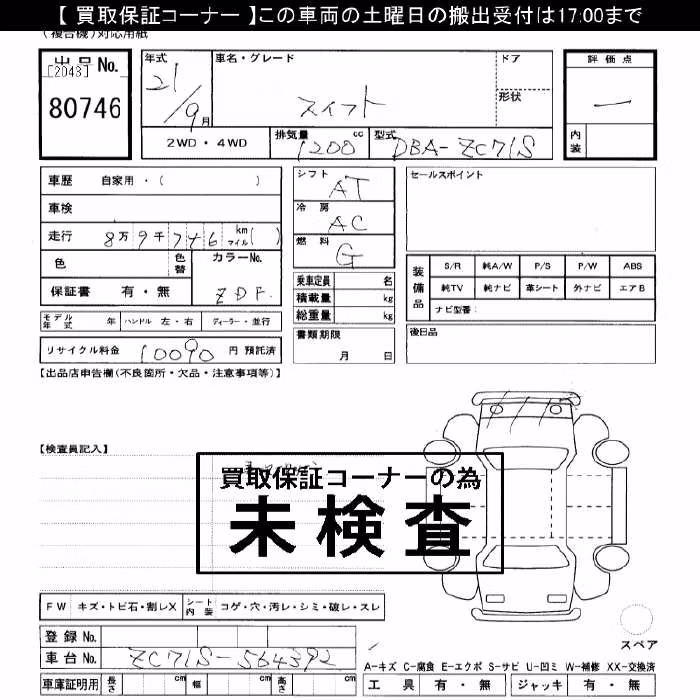 【 買取保証コーナー 】この車両の土曜日の搬出受付は17:00まで
(複合機)対応用紙
出品No.
[2043]
80746
年式
21/9月
車名・グレード
スイフト
ドア
形状
評価点
一
内装
2WD・4WD
排気量 1200 cc
型式 DBA-ZC71S
車歴 自家用・( )
車検
走行 8万9千746 km マイル( )
色
色替
カラーNo.
ZDF
保証書 有・無
シフト AT
冷房 AC
燃料 G
乗車定員 名
積載量 kg
総重量 kg
セールスポイント
装備品
S/R 純A/W P/S P/W ABS
純TV 純ナビ 革シート 外ナビ エアB
ナビ型番:
モデル年式 年 ハンドル 左・右 ディーラー・並行
書類期限
月 日
後日品
リサイクル料金 10090 円 預託済
【出品店申告欄(不良箇所・欠品・注意事項等)】
【検査員記入】
買取保証コーナーの為
未検査
FW キズ・トビ石・割レX
シート内装 コゲ・穴・汚レ・シミ・破レ・スレ
スペア
登録No.
車台No. ZC71S-564392
A-キズ C-腐食 E-エクボ S-サビ U-凹ミ W-補修 XX-交換済
車庫証明用 長さ cm 幅 cm 高さ cm
工具 有・無 ジャッキ 有・無